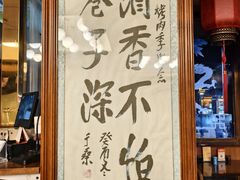 烤肉季念
酒香不怕
巷子深
癸酉冬
于桑